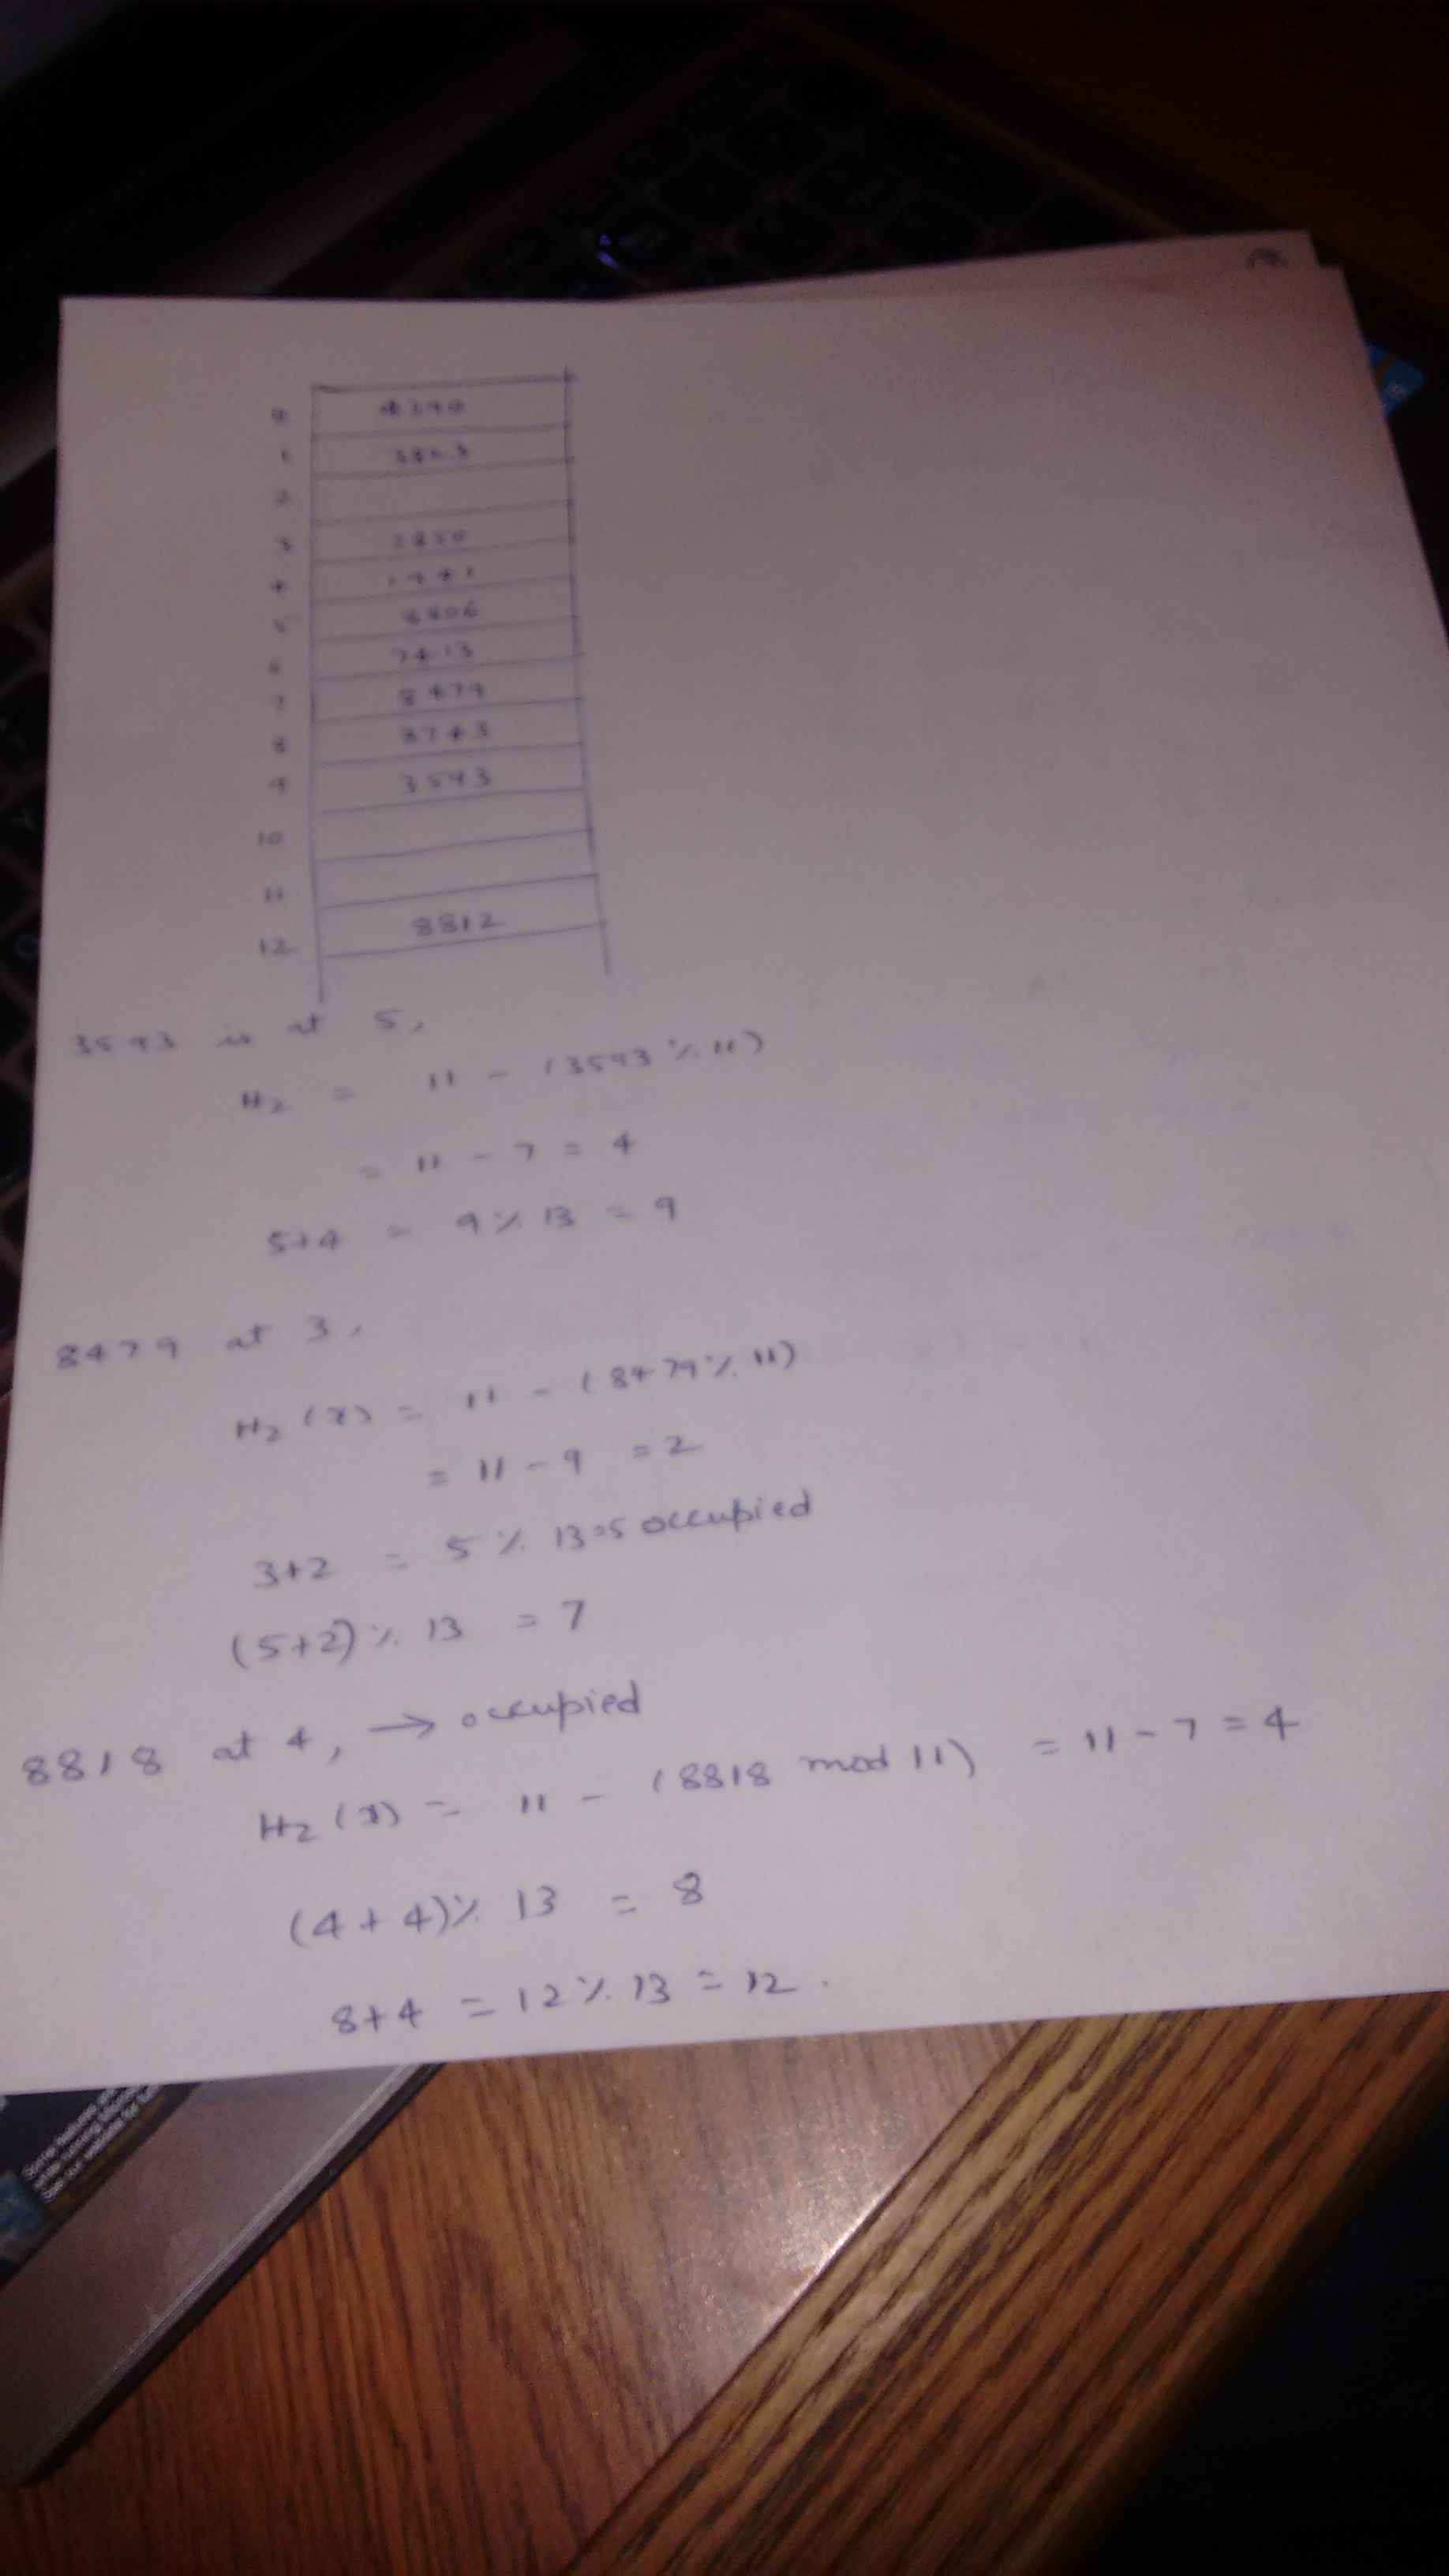 0 4290
1 3863
2
3 2850
4 1781
5 8806
6 7413
7 8479
8 8743
9 3593
10
11
12 8812
3593 is at 5,
H2 = 11 - (3593 % 11)
= 11 - 7 = 4
5+4 = 9 % 13 = 9
8479 at 3,
H2 (x) = 11 - (8479 % 11)
= 11 - 9 = 2
3+2 = 5 % 13=5 occupied
(5+2) % 13 = 7
8818 at 4, → occupied
H2 (x) = 11 - (8818 mod 11) = 11 - 7 = 4
(4 + 4) % 13 = 8
8+4 = 12 % 13 = 12.